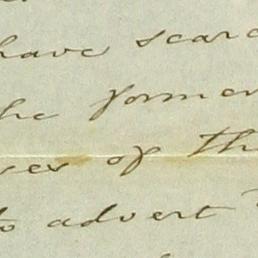 have searc
he former
ses of th
to advert